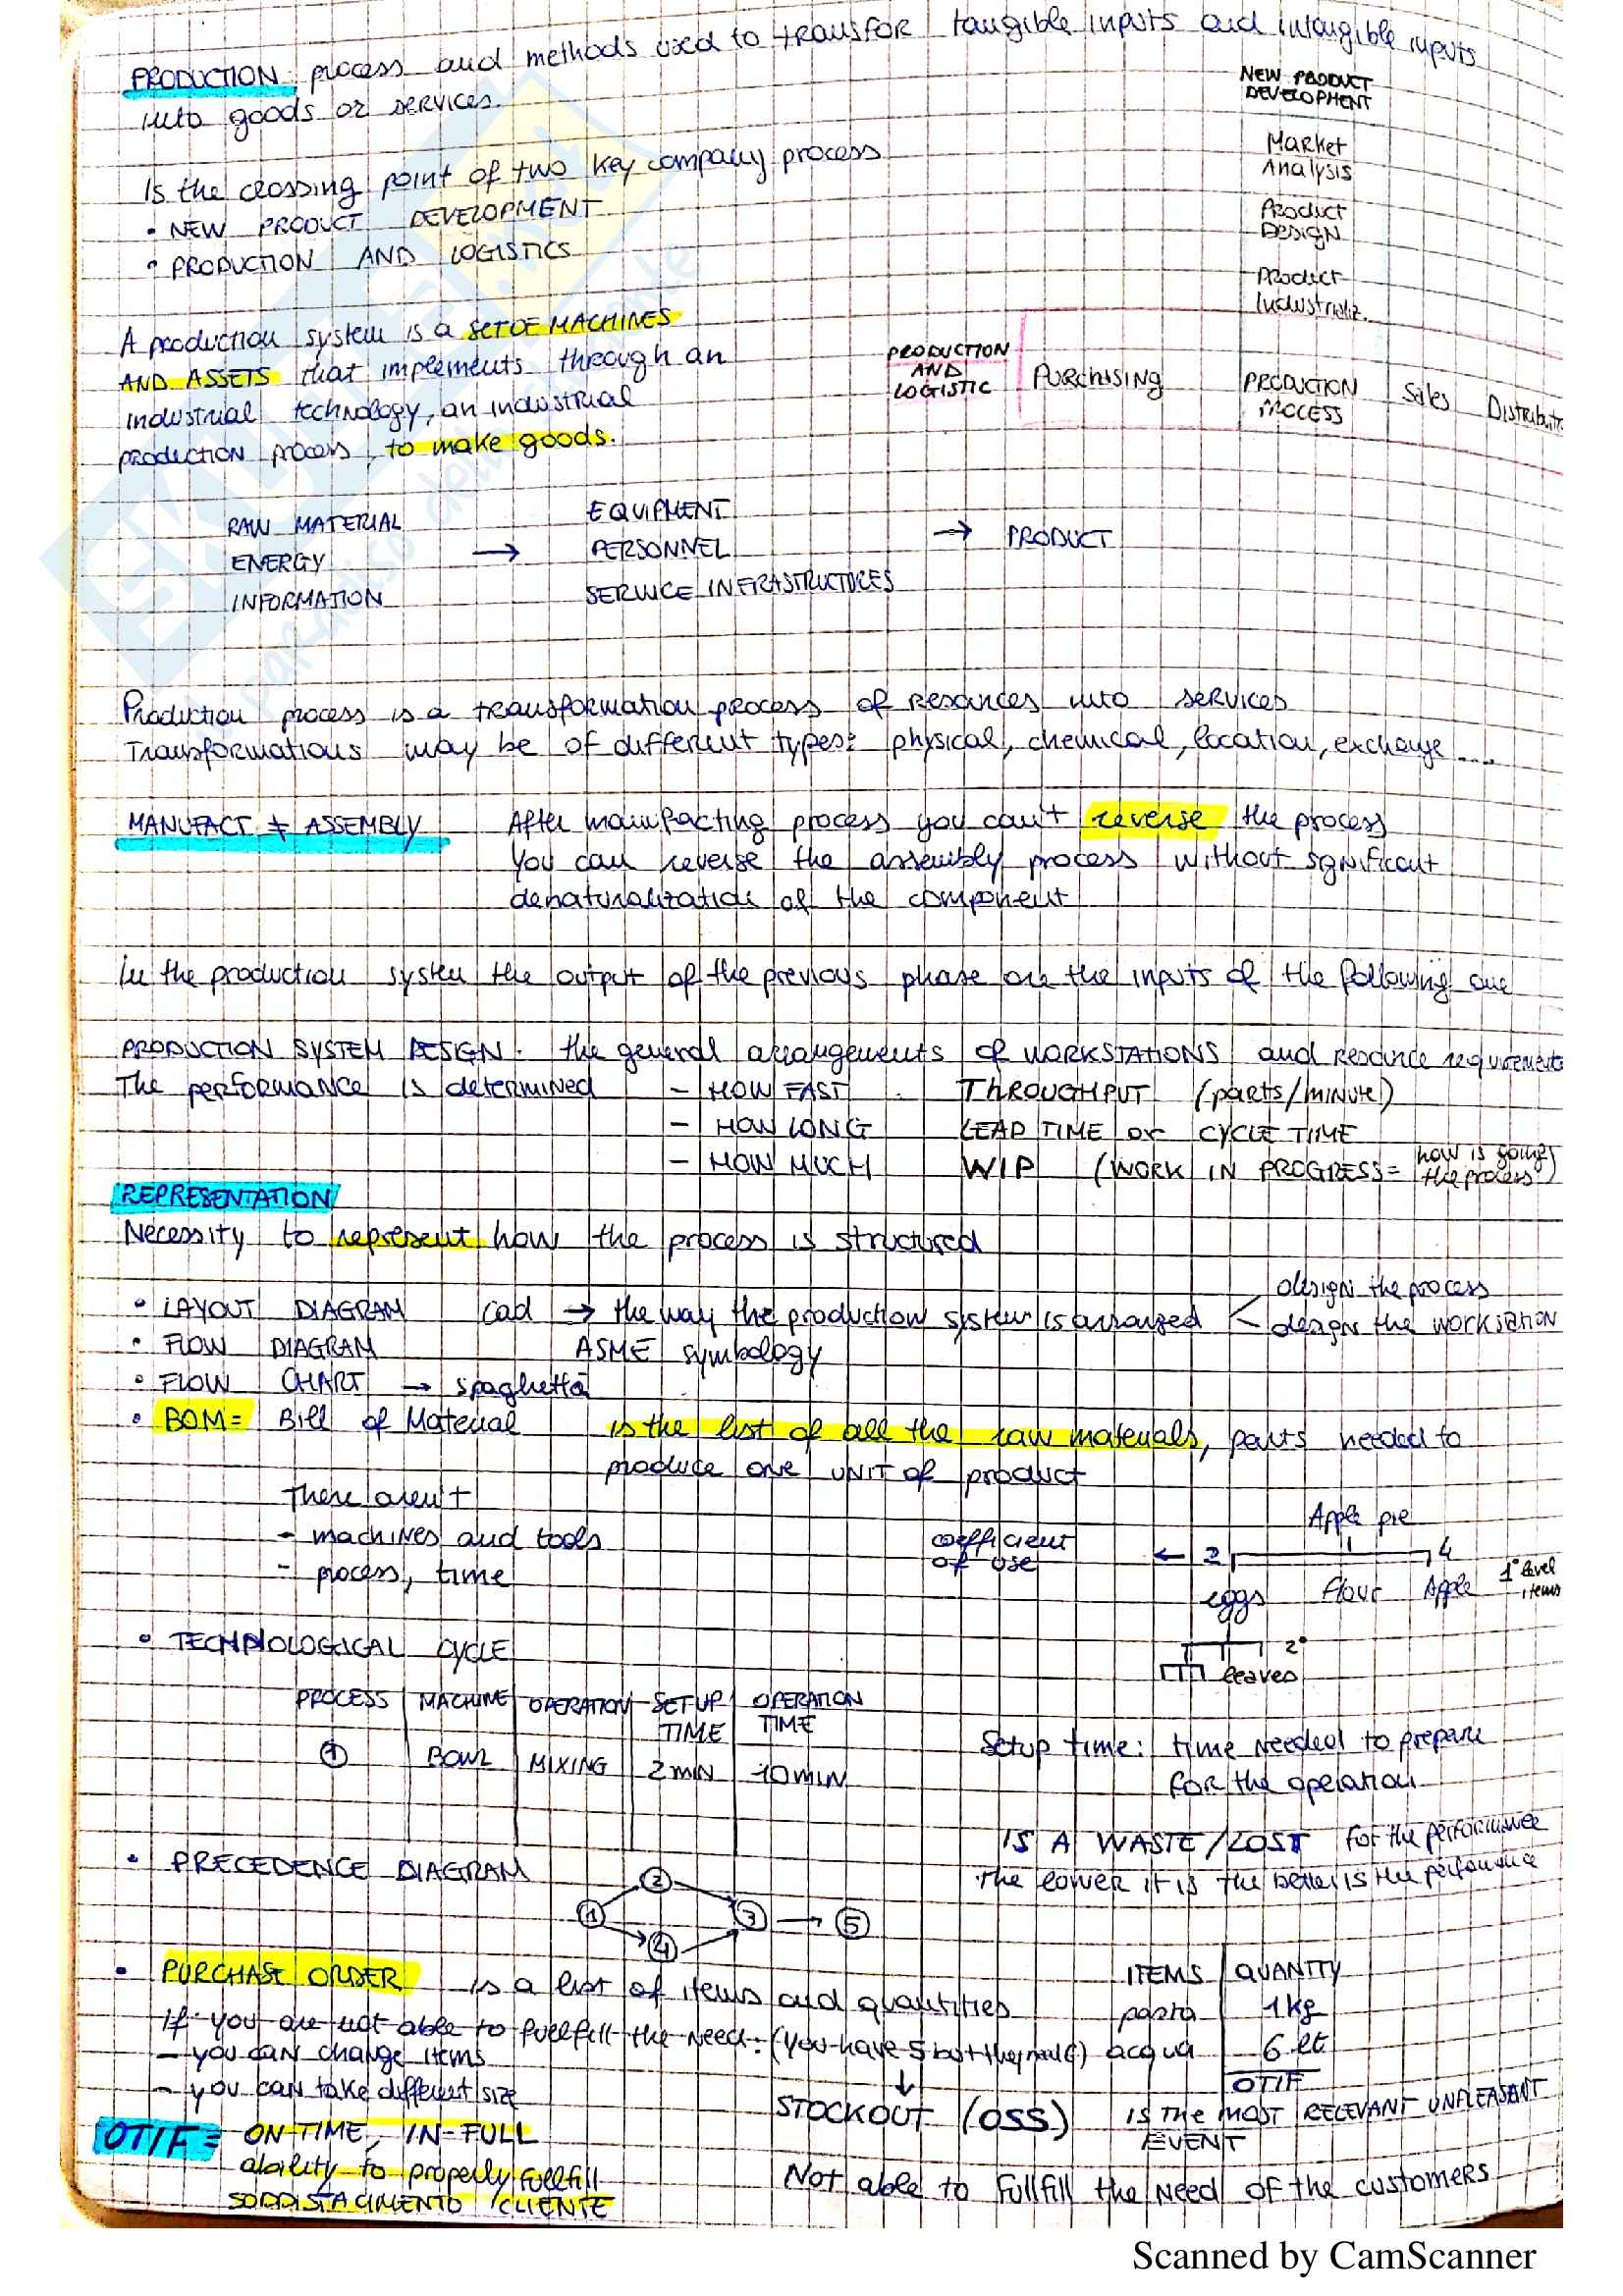 PRODUCTION: process and methods used to transfor tangible inputs and intangible inputs
into goods or services.
Is the crossing point of two key company process
• NEW PRODUCT DEVELOPMENT
• PRODUCTION AND LOGISTICS
NEW PRODUCT
DEVELOPMENT
Market
Analysis
Product
Design
Product
Industrializ.
A production system is a SET OF MACHINES
AND ASSETS that implements through an
industrial technology, an industrial
production process, to make goods.
PRODUCTION
AND
LOGISTIC
PURCHASING
PRODUCTION
PROCESS
Sales
Distributi
RAW MATERIAL
ENERGY
INFORMATION
→
EQUIPMENT
PERSONNEL
SERVICE INFRASTRUCTURES
→ PRODUCT
Production process is a transformation process of resources into services
Transformations may be of different types: physical, chemical, location, exchange ....
MANUFACT ≠ ASSEMBLY After manufacting process you can't reverse the process
You can reverse the assembly process without significant
denaturalization of the component
In the production system the output of the previous phase are the inputs of the following one
PRODUCTION SYSTEM DESIGN: the general arrangements of WORKSTATIONS and resource requirements
The performance is determined - HOW FAST THROUGHPUT (parts/minute)
- HOW LONG LEAD TIME or CYCLE TIME
- HOW MUCH WIP (WORK IN PROGRESS = how is going the process)
REPRESENTATION
Necessity to represent how the process is structured
• LAYOUT DIAGRAM cad → the way the production system is arranged < design the process
design the workstation
• FLOW DIAGRAM ASME symbology
• FLOW CHART → spaghetti
• BOM = Bill of Material is the list of all the raw materials, parts needed to
produce one UNIT of product
There aren't
- machines and tools
- process, time
coefficient
of use
← 2
Apple pie
4
eggs Flour Apple 1° level
items
2°
leaves
• TECHNOLOGICAL CYCLE
PROCESS | MACHINE | OPERATION | SETUP TIME | OPERATION TIME
① | BOWL | MIXING | 2 MIN | 10 MIN
Setup time: time needed to prepare
for the operation
IS A WASTE/LOST for the performance
the lower it is the better is the performance
• PRECEDENCE DIAGRAM
① ② ④ ③ → ⑤
• PURCHASE ORDER is a list of items and quantities
If you are not able to fullfill the need: (you have 5 but they need 6)
- you can change items
- you can take different size
ITEMS | QUANTITY
pasta | 1 kg
acqua | 6 lt
OTIF
↓
STOCKOUT (OSS) IS THE MOST RELEVANT UNPLEASANT
EVENT
OTIF = ON TIME, IN-FULL
ability to properly fullfill
SODDISFACIMENTO CLIENTE
Not able to fullfill the need of the customers
Scanned by CamScanner